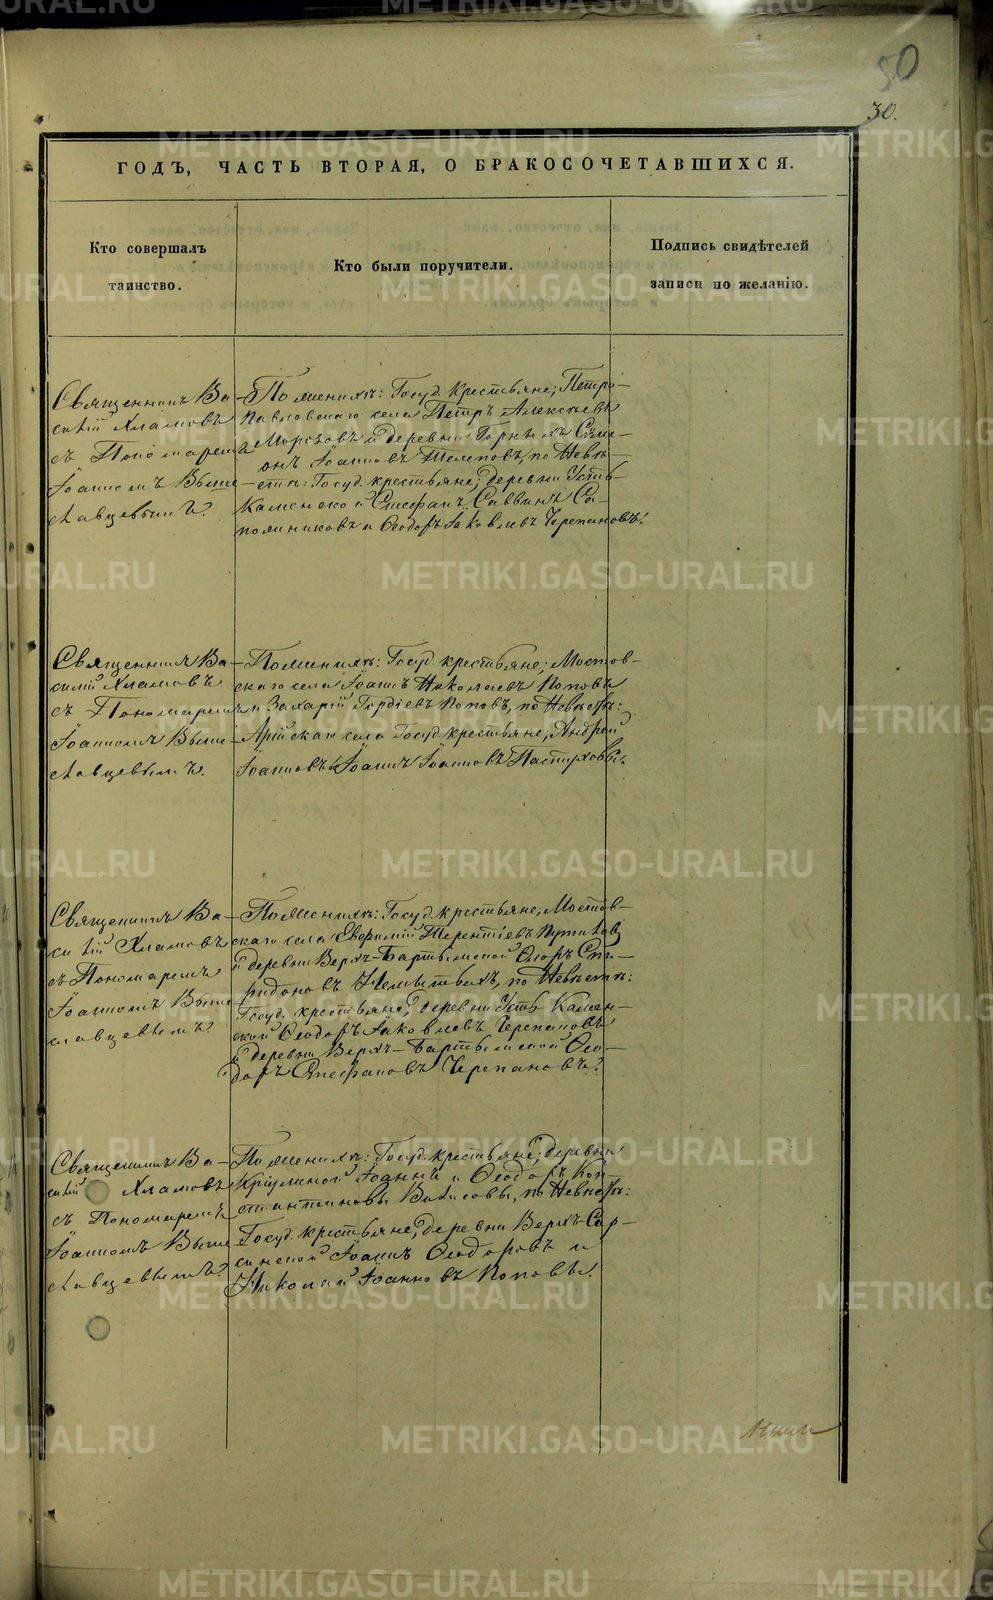 METRIKI.GASO-URAL.RU
50
30.
ГОДЪ, ЧАСТЬ ВТОРАЯ, О БРАКОСОЧЕТАВШИХСЯ.
Кто совершалъ
таинство.
Кто были поручители.
Подпись свидѣтелей
записи по желанію.
Священникъ Ва-
силій Хламовъ
съ Пономаремъ
Іоанномъ Выше-
славцевымъ.
По женихѣ: Госуд. крестьяне; Петро-
павловскаго села Петръ Алексѣевъ
Морозовъ и деревни
Іоанновъ Шелеповъ, по невѣ-
стѣ: Госуд. крестьяне; деревни Усть
Каменской Стефанъ Саввинъ Са-
пожниковъ и Ѳеодоръ Яковлевъ Черепановъ.
Священникъ Ва-
силій Хламовъ
съ Пономаремъ
Іоанномъ Выше-
славцевымъ.
По женихѣ: Госуд. крестьяне; Мостов-
скаго села Іоаннъ Николаевъ Поповъ
и Захарій Гордіевъ Поповъ, по невѣстѣ:
Арійскаго села Госуд. крестьяне; Андрей
Іоанновъ и Іоаннъ Іоанновъ Пастуховы.
Священникъ Ва-
силій Хламовъ
съ Пономаремъ
Іоанномъ Выше-
славцевымъ.
По женихѣ: Госуд. крестьяне; Мостов-
скаго села Евфимій Терентіевъ
и деревни Верхъ-Бартымской Ѳеодоръ Спи-
ридоновъ по невѣстѣ:
Госуд. крестьяне; деревни Усть Камен-
ской Ѳеодоръ Яковлевъ Черепановъ
и деревни Верхъ-Бартымской Ѳео-
доръ Стефановъ Черепановъ.
Священникъ Ва-
силій Хламовъ
съ Пономаремъ
Іоанномъ Выше-
славцевымъ.
По женихѣ: Госуд. крестьяне; деревни
Іоаннъ и Ѳеодоръ Кон-
стантиновы по невѣстѣ:
Госуд. крестьяне; деревни Верхъ-Сар-
синской Іоаннъ Ѳеодоровъ и
Николай Іоанновъ Поповы.